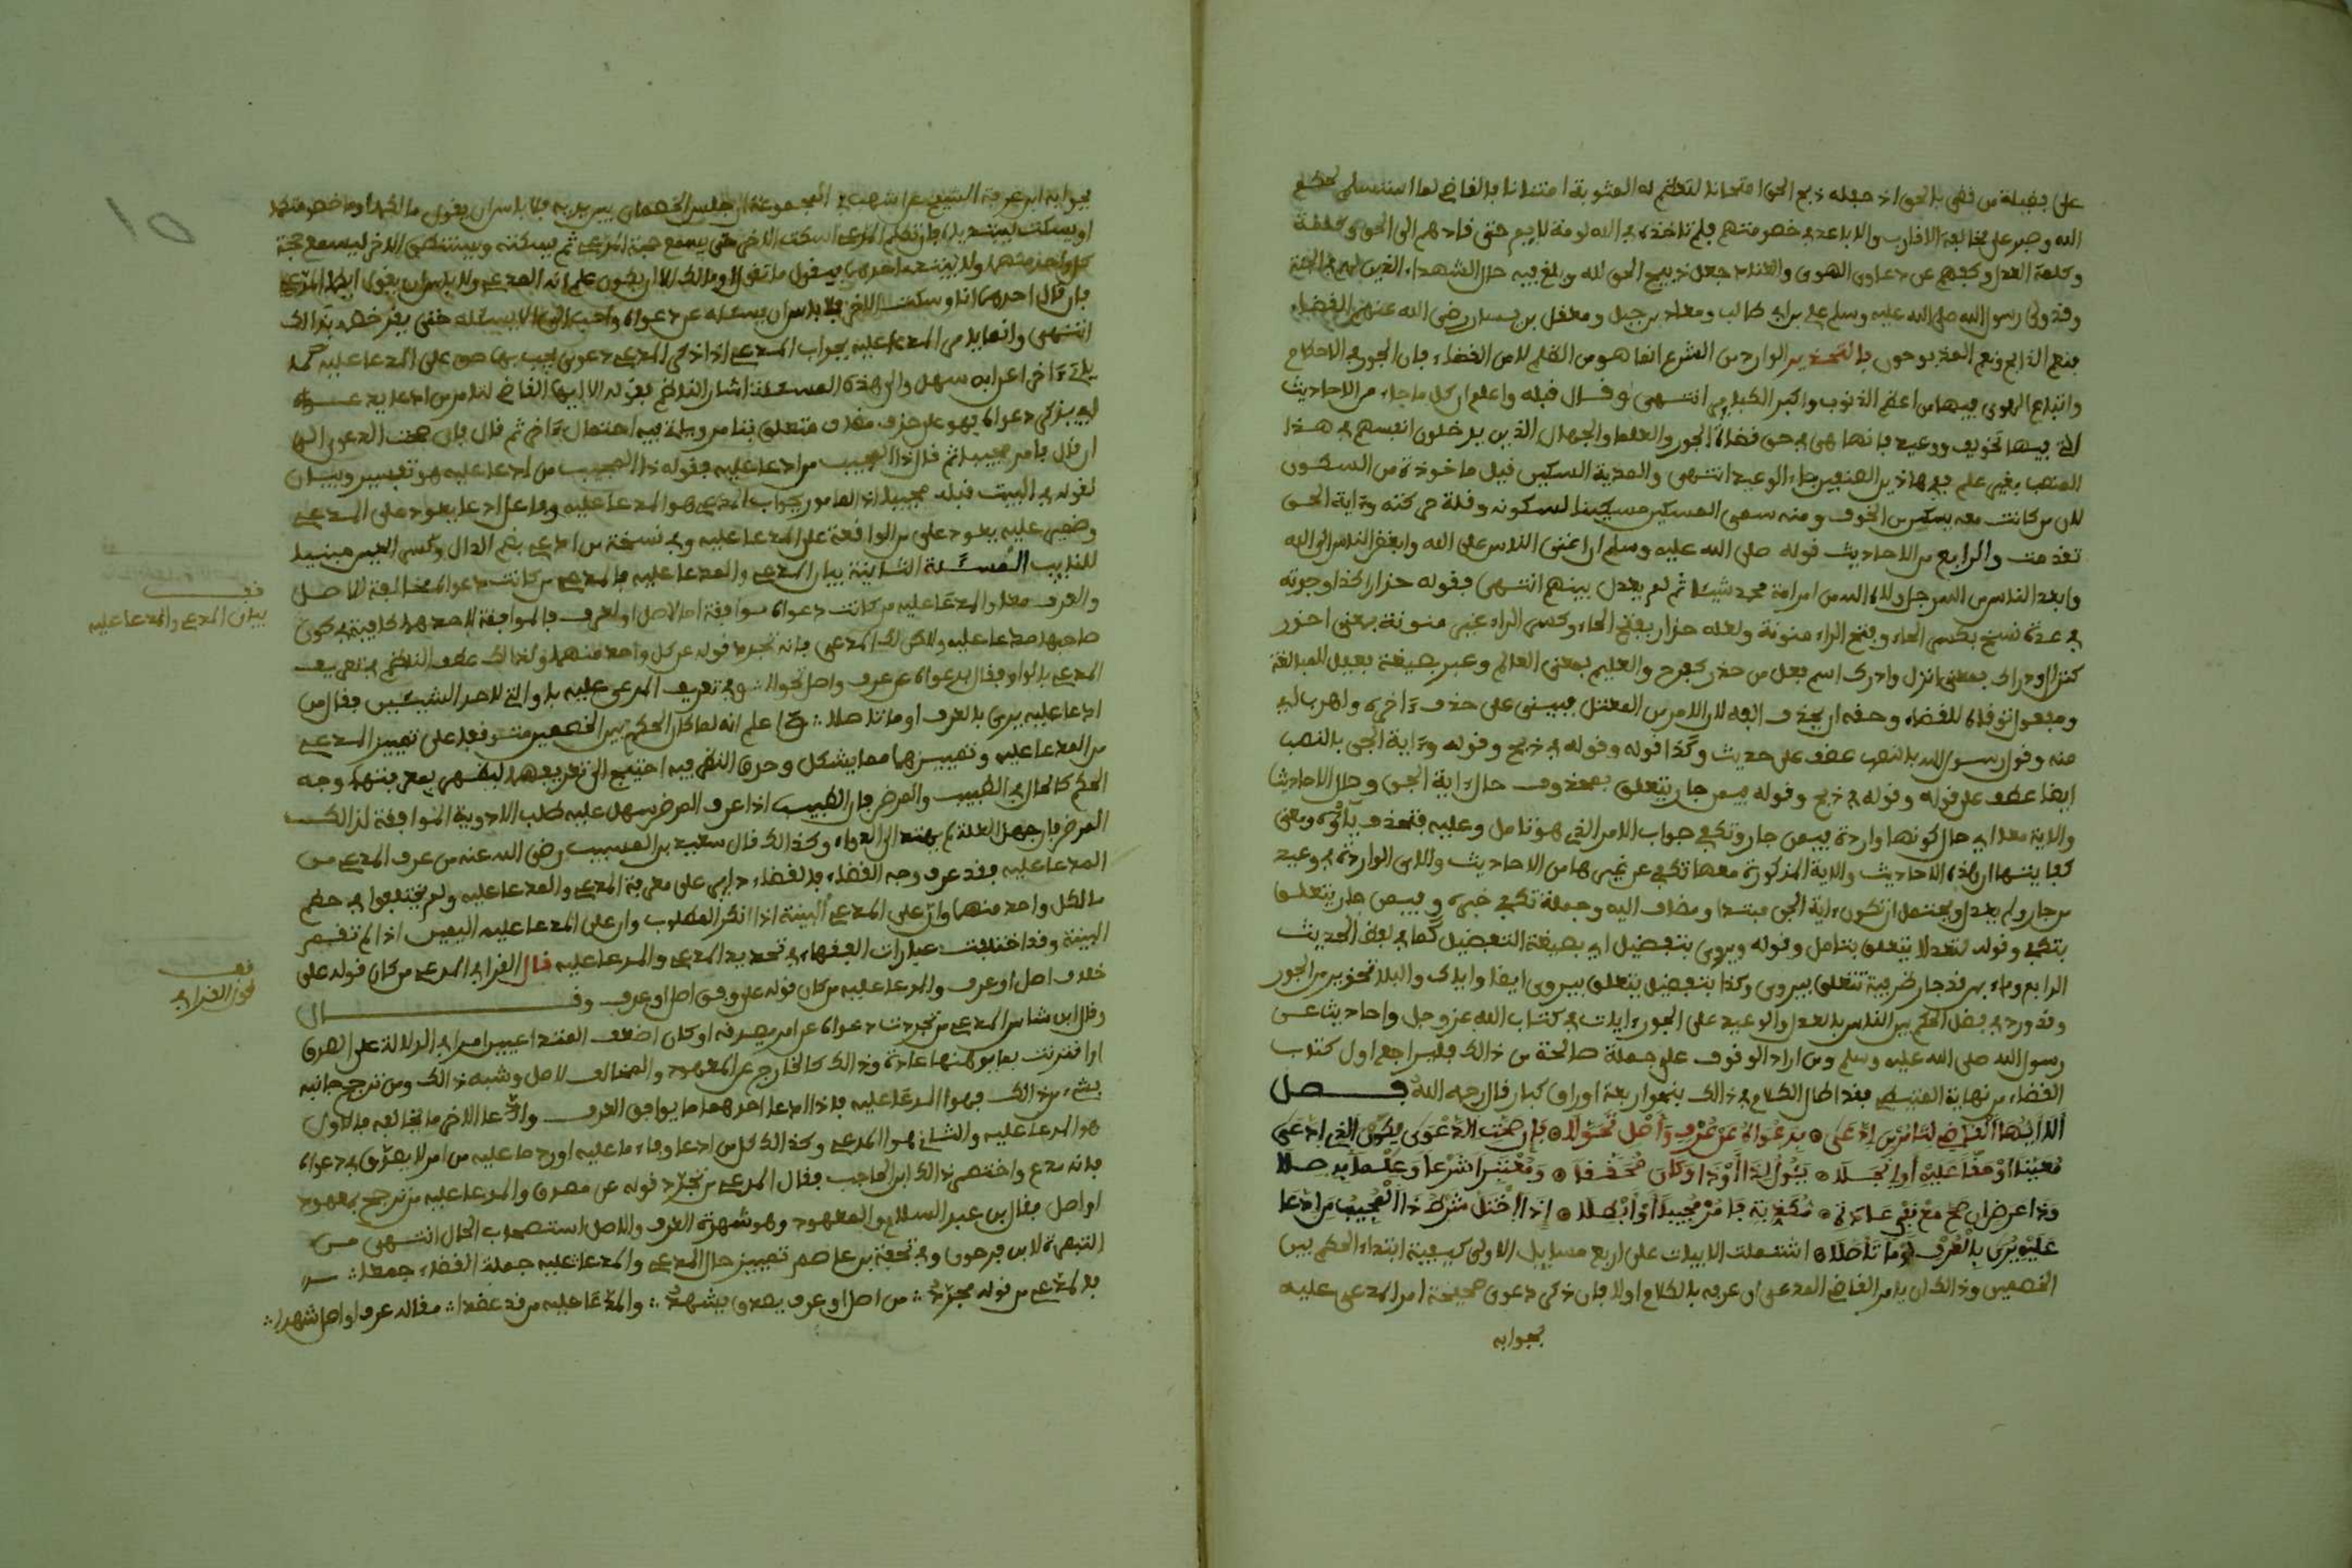 على فضيلة من قضى بالحق اذ جعله ذبيح الحق امتحانا لتعظم له المثوبة امتنانا فالقاضي لما استسلم لحكم
الله وصبر على مخالفة الاقارب والاباعد في خصومتهم فلم تاخذه في الله لومة لايم حتى قادهم الى الحق وكلمة
وكلمة العدل وكفهم عن دعاوى الهوى والعناد جعل ذبيح الحق لله وبلغ فيه حال الشهداء الذين لهم الجنة
وقد ولى رسول الله صلى الله عليه وسلم علي بن ابي طالب ومعاذ بن جبل ومعقل بن يسار رضي الله عنهم القضاء
فنعم الذابح ونعم المذبوحون فالتحذير الوارد من الشرع انما هو من الظلم لا من القضاء فان الجور في الاحكام
واتباع الهوى فيها من اعظم الذنوب واكبر الكباير انتهى وقال قبله واعلم ان كل ما جاء من الاحاديث
التي فيها تخويف ووعيد فانما هي في حق قضاة الجور والعلماء والجهال الذين يدخلون انفسهم في هذا
المنصب بغير علم ففي هاذين الصنفين جاء الوعيد انتهى والمدية السكين قيل ماخوذة من السكون
لان من كانت معه يسكن من الخوف ومنه سمي المسكين مسكينا لسكونه وقلة حركته وءاية الحق
تقدمت والرابع من الاحاديث قوله صلى الله عليه وسلم ان اعتى الناس على الله وابغض الناس الى الله
وابعد الناس من الله رجل ولاه الله من امر امة محمد شيئا ثم لم يعدل بينهم انتهى فقوله حذار كذا وجدته
في عدة نسخ بكسر الحاء وفتح الراء منونة ولعله حذار بفتح الحاء وكسر الراء غير منونة بمعنى احذر
كنزال ودراك بمعنى انزل وادرك اسم فعل من حذر كفرح والعليم بمعنى العالم وعبر بصيغة فعيل للمبالغة
منه وقول رسول الله بالنصب عطف على حديث وكذا قوله وقوله في ذبح وقوله وءاية الحق بالنصب
ايضا عطف على قوله وقوله في ذبح وقوله فيمن جار يتعلق بمحذوف حال ءاية الحق وحال الاحاديث
والاية معا اي حال كونها واردة فيمن جار وتكف جواب الامر الذي هو تامل وعليه فتحذف ياؤه ومعنى
كفايتها ان هذه الاحاديث والاية المذكورة معها تكفي عن غيرها من الاحاديث والاى الواردة في وعيد
من جار ولم يعدل ويحتمل ان تكون ءاية الحق مبتدا ومضاف اليه وجملة تكفي خبره وفيمن جار يتعلق
بتكفي وقوله لتعدلا يتعلق بتامل وقوله ويروى بتفضيل اي بصيغة التفضيل كما في لفظ الحديث
وقد ورد في فضل الحكم بين الناس بالعدل والوعيد على الجور ءايات في كتاب الله عز وجل واحاديث عن
رسول الله صلى الله عليه وسلم ومن اراد الوقوف على جملة صالحة من ذالك فليراجع اول كتاب
القضاء من نهاية المتيطي فقد اطال الكلام في ذالك بنحو اربعة اوراق كبار قال رحمه الله فصل
ألا أيها القاضي لتامر من ادعى ۞ بدعواه عن عرف وأصل تحولا ۞ فإن صحت الدعوى بكون الذي ادعى
معينا او حقا عليه
ومعتبرا شرعا وعلما به صلا
وذا غرض ان صح مع نفي عادة ۞ مكذبة فامر مجيبا او ابطلا ۞ إذا اختل شرط ذا المجيب من ادعا
عليه يرى بالعرف أو ما تأصلا ۞ اشتملت الابيات على اربع مسايل الاولى كيفية ابتداء الحكم بين
الخصمين وذالك ان يامر القاضي المدعي ان عرفه بالكلام اولا فان ذكر دعوى صحيحة امر المدعى عليه
بجوابه
بجوابه ابن عرفة الشيخ عن اشهب في المجموعة ان جلس الخصمان بين يديه فلا باس ان يقول ما لكما او ما خصومتكما
او يسكت ليبتدياه فان تكلم المدعي اسكت الاخر حتى يسمع حجة المدعي ثم يسكته ويستنطق الاخر ليسمع حجة
كل واحد منهما ولا يبتدئ احدهما فيقول ما تقول او مالك الا ان يكون علم انه المدعي ولا باس ان يقول ايكما المدعي
فان قال احدهما انا وسكت الاخر فلا باس ان يسئله عن دعواه واحب الي ان لا يسئله حتى يقر خصمه بذالك
انتهى وانما يامر المدعا عليه بجواب المدعي اذا ذكر المدعي دعوى يجب بها حق على المدعا عليه كما
ياتي ءاخر اعرابه سهل والى هذه المسئلة اشار الناظم بقوله الا ايها القاضي لتامر من ادعا بدعواه
ان قال فامر مجيبا ثم قال ذا المجيب من ادعا عليه فقوله ذا المجيب من ادعا عليه هو تفسير وبيان
لقوله في البيت قبله مجيبا اذ المامور بجواب المدعي هو المدعا عليه وفاعل ادعا يعود على المدعي
وضمير عليه يعود على من الواقعة على المدعا عليه وفي نسخة من ادعي بضم الدال وكسر العين مبنيا
للنايب المسئلة الثانية بيان المدعي والمدعا عليه فالمدعي من كانت دعواه مخالفة للاصل
والعرف معا والمدعا عليه من كانت دعواه موافقة اما لاصل او لعرف فالموافقة لاحدهما كافية في كون
صاحبها مدعا عليه ولا كذلك المدعي فانه تجرد قوله عن كل واحد منهما ولذالك عطف الناظم في تعريف
المدعي بالواو فقال بدعواه عن عرف واصل تحولا وفي تعريف المدعى عليه باو التي لاحد الشيئين فقال من
ادعا عليه يرى بالعرف او ما تاصلا ؞ واعلم انه لما كان الحكم بين الخصمين متوقفا على تمييز المدعي
من المدعا عليه وتمييزهما مما يشكل وحرك النظر فيه احتيج الى تعريفهما ليظهر بمعرفتهما وجه
الحكم كالحال في الطبيب والمرض فان الطبيب اذا عرف المرض سهل عليه طلب الادوية الموافقة لذالك
المرض فان جهل العلة لم يهتد الى الدواء وكذالك قال سعيد بن المسيب رضي الله عنه من عرف المدعي من
المدعا عليه فقد عرف وجه القضاء فالقضاء داير على معرفة المدعي والمدعا عليه ولم يختلفوا في حكم
ما لكل واحد منهما وان على المدعي البينة اذا انكر المطلوب وان على المدعا عليه اليمين اذا لم تقم
البينة وقد اختلفت عبارات الفقهاء في تحديد المدعي والمدعا عليه قال القرافي المدعي من كان قوله على
خلاف اصل او عرف والمدعا عليه من كان قوله على وفق اصل او عرف وقال
وقال ابن شاس المدعي من تجردت دعواه عن امر يصدقه او كان اضعف المتداعيين امرا في الدلالة على الصدق
او اقترنت بما يوهنها عادة وذالك كالخارج عن المعهود والمخالف لاصل وشبه ذالك ومن ترجح جانبه
بشيء من ذالك فهو المدعا عليه فاذا ادعا احدهما ما يوافق العرف وادعا الاخر ما يخالفه فالاول
هو المدعا عليه والثاني هو المدعي وكذالك كل من ادعا وفاء ما عليه او رد ما عليه من امر لا يصدق في دعواه
فانه مدع واختصر ذالك ابن الحاجب فقال المدعي من تجرد قوله عن مصدق والمدعا عليه من ترجح بمعهود
او اصل فقال بن عبد السلام والمعهود وهو شهرة العرف والاصل استصحاب الحال انتهى من
التبصرة لابن فرحون وفي تحفة بن عاصم تمييز حال المدعي والمدعا عليه جملة القضاء جمعا ؞
فالمدعي من قوله مجرد ؞ من اصل او عرف بصدق يشهد ؞ والمدعا عليه من قد عضدا ؞ مقاله عرف او اصل شهدا ؞
قف
بيان المدعي والمدعا عليه
قف